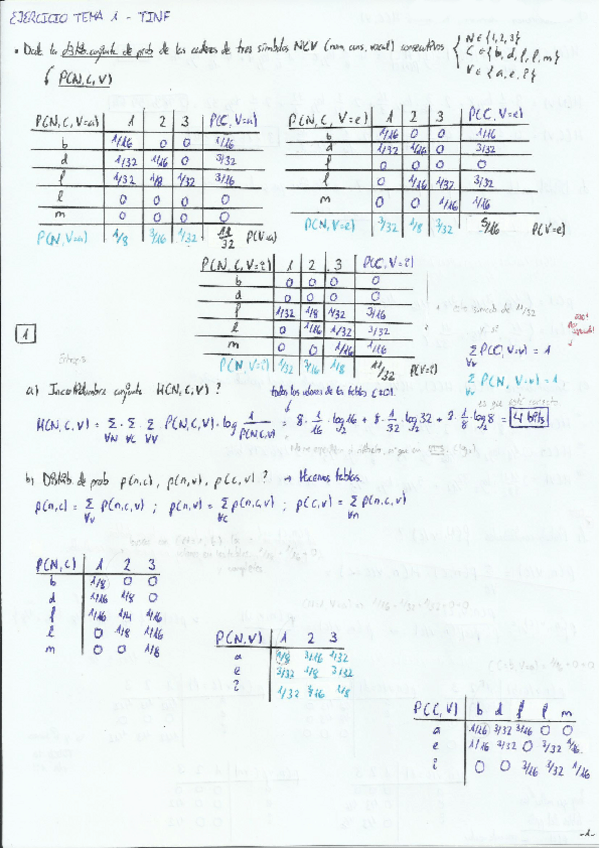 EJERCICIO TEMA 1 - TINF
• Dada la distrib. conjunta de prob de las cadenas de tres símbolos NCV (num, cons, vocal) consecutivos { N ∈ {1, 2, 3}
C ∈ {b, d, f, l, m}
V ∈ {a, e, i}
P(N, C, V)
P(N, C, V=a) 1 2 3 P(C, V=a)
b 1/16 0 0 1/16
d 1/32 1/16 0 3/32
f 1/32 1/8 1/32 3/16
l 0 0 0 0
m 0 0 0 0
P(N, V=a) 1/8 3/16 1/32 11/32 P(V=a)
P(N, C, V=e) 1 2 3 P(C, V=e)
b 1/16 0 0 1/16
d 1/32 1/16 0 3/32
f 0 0 0 0
l 0 1/16 1/32 3/32
m 0 0 1/16 1/16
P(N, V=e) 3/32 1/8 3/32 5/16 P(V=e)
P(N, C, V=i) 1 2 3 P(C, V=i)
b 0 0 0 0
d 0 0 0 0
f 1/32 1/8 1/32 3/16
l 0 1/16 1/32 3/32
m 0 0 1/16 1/16
P(N, V=i) 1/32 3/16 1/8 11/32 P(V=i)
1
Σ P(C, V=v) = 1
∀v
Σ P(N, V=v) = 1
∀v
a) Incertidumbre conjunta H(N, C, V) ?
todos los valores de las tablas
H(N, C, V) = Σ Σ Σ P(N, C, V) · log 1/P(N,C,V) = 8 · 1/16 · log16 + 8 · 1/32 · log32 + 2 · 1/8 log8 = 4 bits
∀N ∀C ∀V
b) Distrib. de prob p(n,c), p(n,v), p(c,v) ? → Hacemos tablas.
p(n,c) = Σ p(n,c,v) ; p(n,v) = Σ p(n,c,v) ; p(c,v) = Σ p(n,c,v)
∀v ∀c ∀n
P(N,C) 1 2 3
b 1/8 0 0
d 1/16 1/8 0
f 1/16 1/4 1/16
l 0 1/8 1/16
m 0 0 1/8
P(N,V) 1 2 3
a 1/8 3/16 1/32
e 3/32 1/8 3/32
i 1/32 3/16 1/8
P(C,V) b d f l m
a 1/16 3/32 3/16 0 0
e 1/16 3/32 0 3/32 1/16
i 0 0 3/16 3/32 1/16
-1-